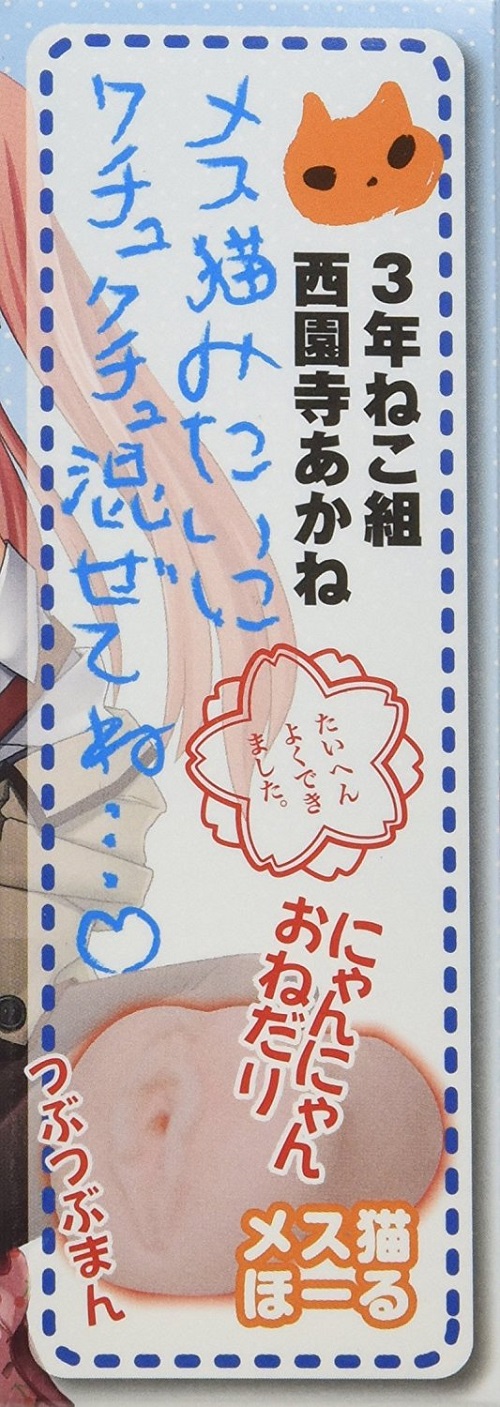 3年ねこ組
西園寺あかね
メス猫みたいに
クチュクチュ混ぜてね…♡
たいへん
よくでき
ました。
にゃんにゃん
おねだり
つぶつぶまん
メス猫
ほーる